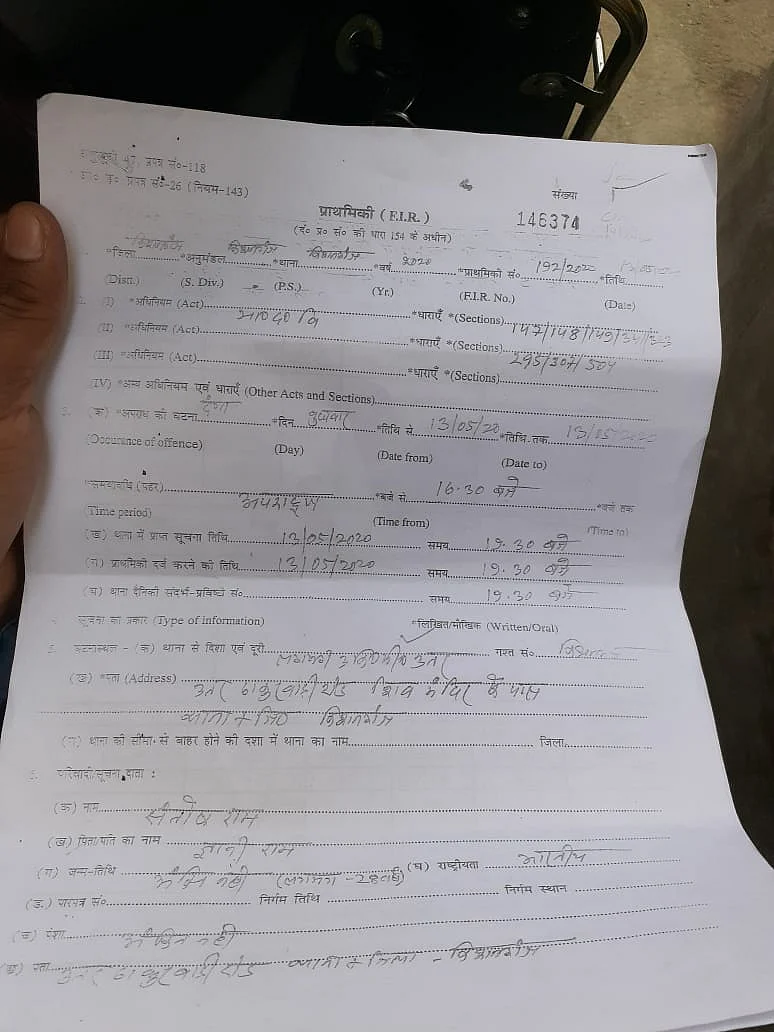 47, प्रपत्र सं०-118
प्रपत्र सं०-26 (नियम-143)
संख्या
प्राथमिकी (F.I.R.)
146374
(दं० प्र० सं० की धारा 154 के अधीन)
*जिला किशनगंज *अनुमंडल किशनगंज *थाना किशनगंज *वर्ष 2020 *प्राथमिकी सं० 192/2020 *तिथि
(Distt.) (S. Div.) (P.S.) (Yr.) (F.I.R. No.) (Date)
(I) *अधिनियम (Act) भा०द०वि *धाराएँ *(Sections) 147/148/149/341/323
(II) *अधिनियम (Act) *धाराएँ *(Sections) 295/307/504
(III) *अधिनियम (Act) *धाराएँ *(Sections)
(IV) *अन्य अधिनियम एवं धाराएँ (Other Acts and Sections)
(क) *अपराध की घटना दंगा *दिन बुधवार *तिथि से 13/05/20 *तिथि तक 13/05/2020
(Occurance of offence) (Day) (Date from) (Date to)
*समयावधि (पहर) अपराह्न *बजे से 16.30 बजे *बजे तक
(Time period) (Time from) (Time to)
(ख) थाना में प्राप्त सूचना तिथि 13/05/2020 समय 19.30 बजे
(ग) प्राथमिकी दर्ज करने की तिथि 13/05/2020 समय 19.30 बजे
(घ) थाना दैनिकी संदर्भ-प्रविष्टि सं० समय 19.30 बजे
सूचना का प्रकार (Type of information) *लिखित/मौखिक (Written/Oral)
घटनास्थल - (क) थाना से दिशा एवं दूरी लगभग उत्तर गश्त सं०
(ख) *पता (Address) उत्तर ठाकुरबाड़ी रोड शिव मंदिर के पास
थाना + जि० किशनगंज
(ग) थाना की सीमा से बाहर होने की दशा में थाना का नाम जिला
6. परिवादी/सूचना दाता :
(क) नाम संतोष राम
(ख) पिता/पति का नाम ज्ञानी राम
(ग) जन्म-तिथि अंकित नहीं (लगभग - 28 वर्ष) (घ) राष्ट्रीयता भारतीय
(ङ) पारपत्र सं० निर्गम तिथि निर्गम स्थान
(च) पेशा अंकित नहीं
पता उत्तर ठाकुरबाड़ी रोड थाना + जिला - किशनगंज